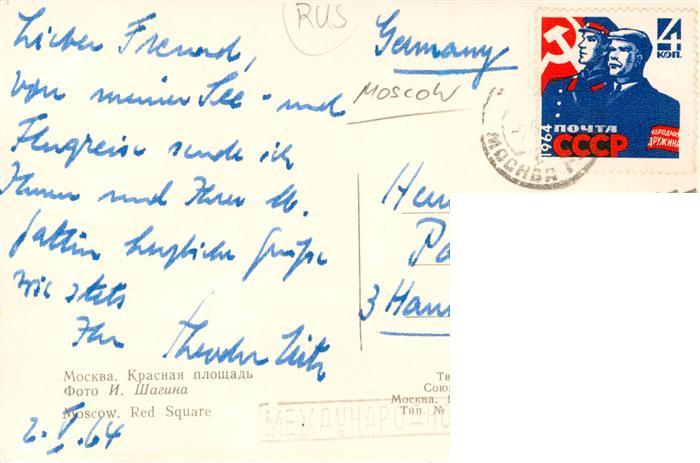 Lieber Freund,
von meiner See- und
Flugreise sende ich
Ihnen und Ihrer
Gattin herzliche Grüße
wie stets
Ihr Theodor
RUS
Germany
MOSCOW
4
КОП.
1964
ПОЧТА
СССР
НАРОДНАЯ
ДРУЖИНА
МОСКВА
3 Han
Москва. Красная площадь
Фото И. Шагина
Moscow. Red Square
Тв
Союз
Москва.
Тип. №
МЕЖДУНАРОДНО
2.V.64